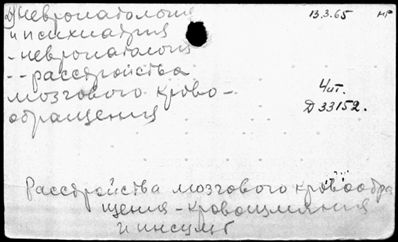 Невропатология 13.3.65 нг
и психиатрия
- невропатология
-- расстройства
мозгового крово-
обращения
Чит.
Д 33152.
Расстройства мозгового кровообра
щения - кровоизлияния
и инсульт